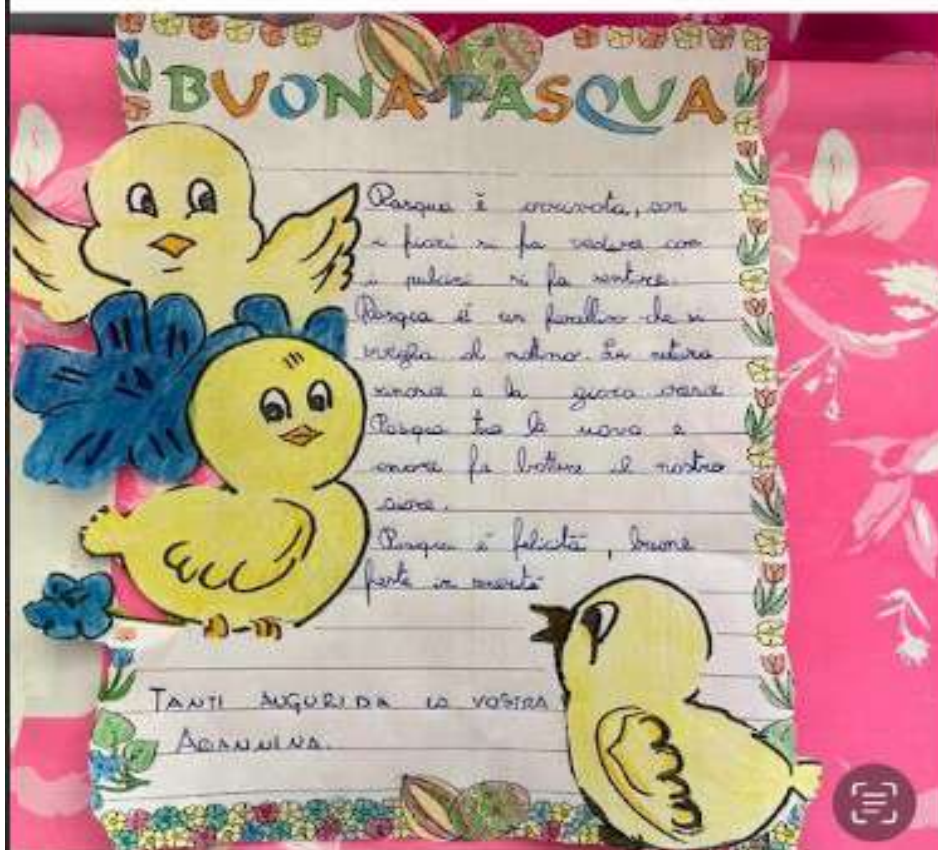 BUONA PASQUA
Pasqua è arrivata, con
i fiori si fa vedere con
i pulcini si fa sentire.
Pasqua è un che si
sveglia al mattino. La natura
e la
Pasqua tra le uova e
amore fa battere il nostro
cuore.
Pasqua è felicità, buone
feste in
TANTI AUGURI DA LA VOSTRA